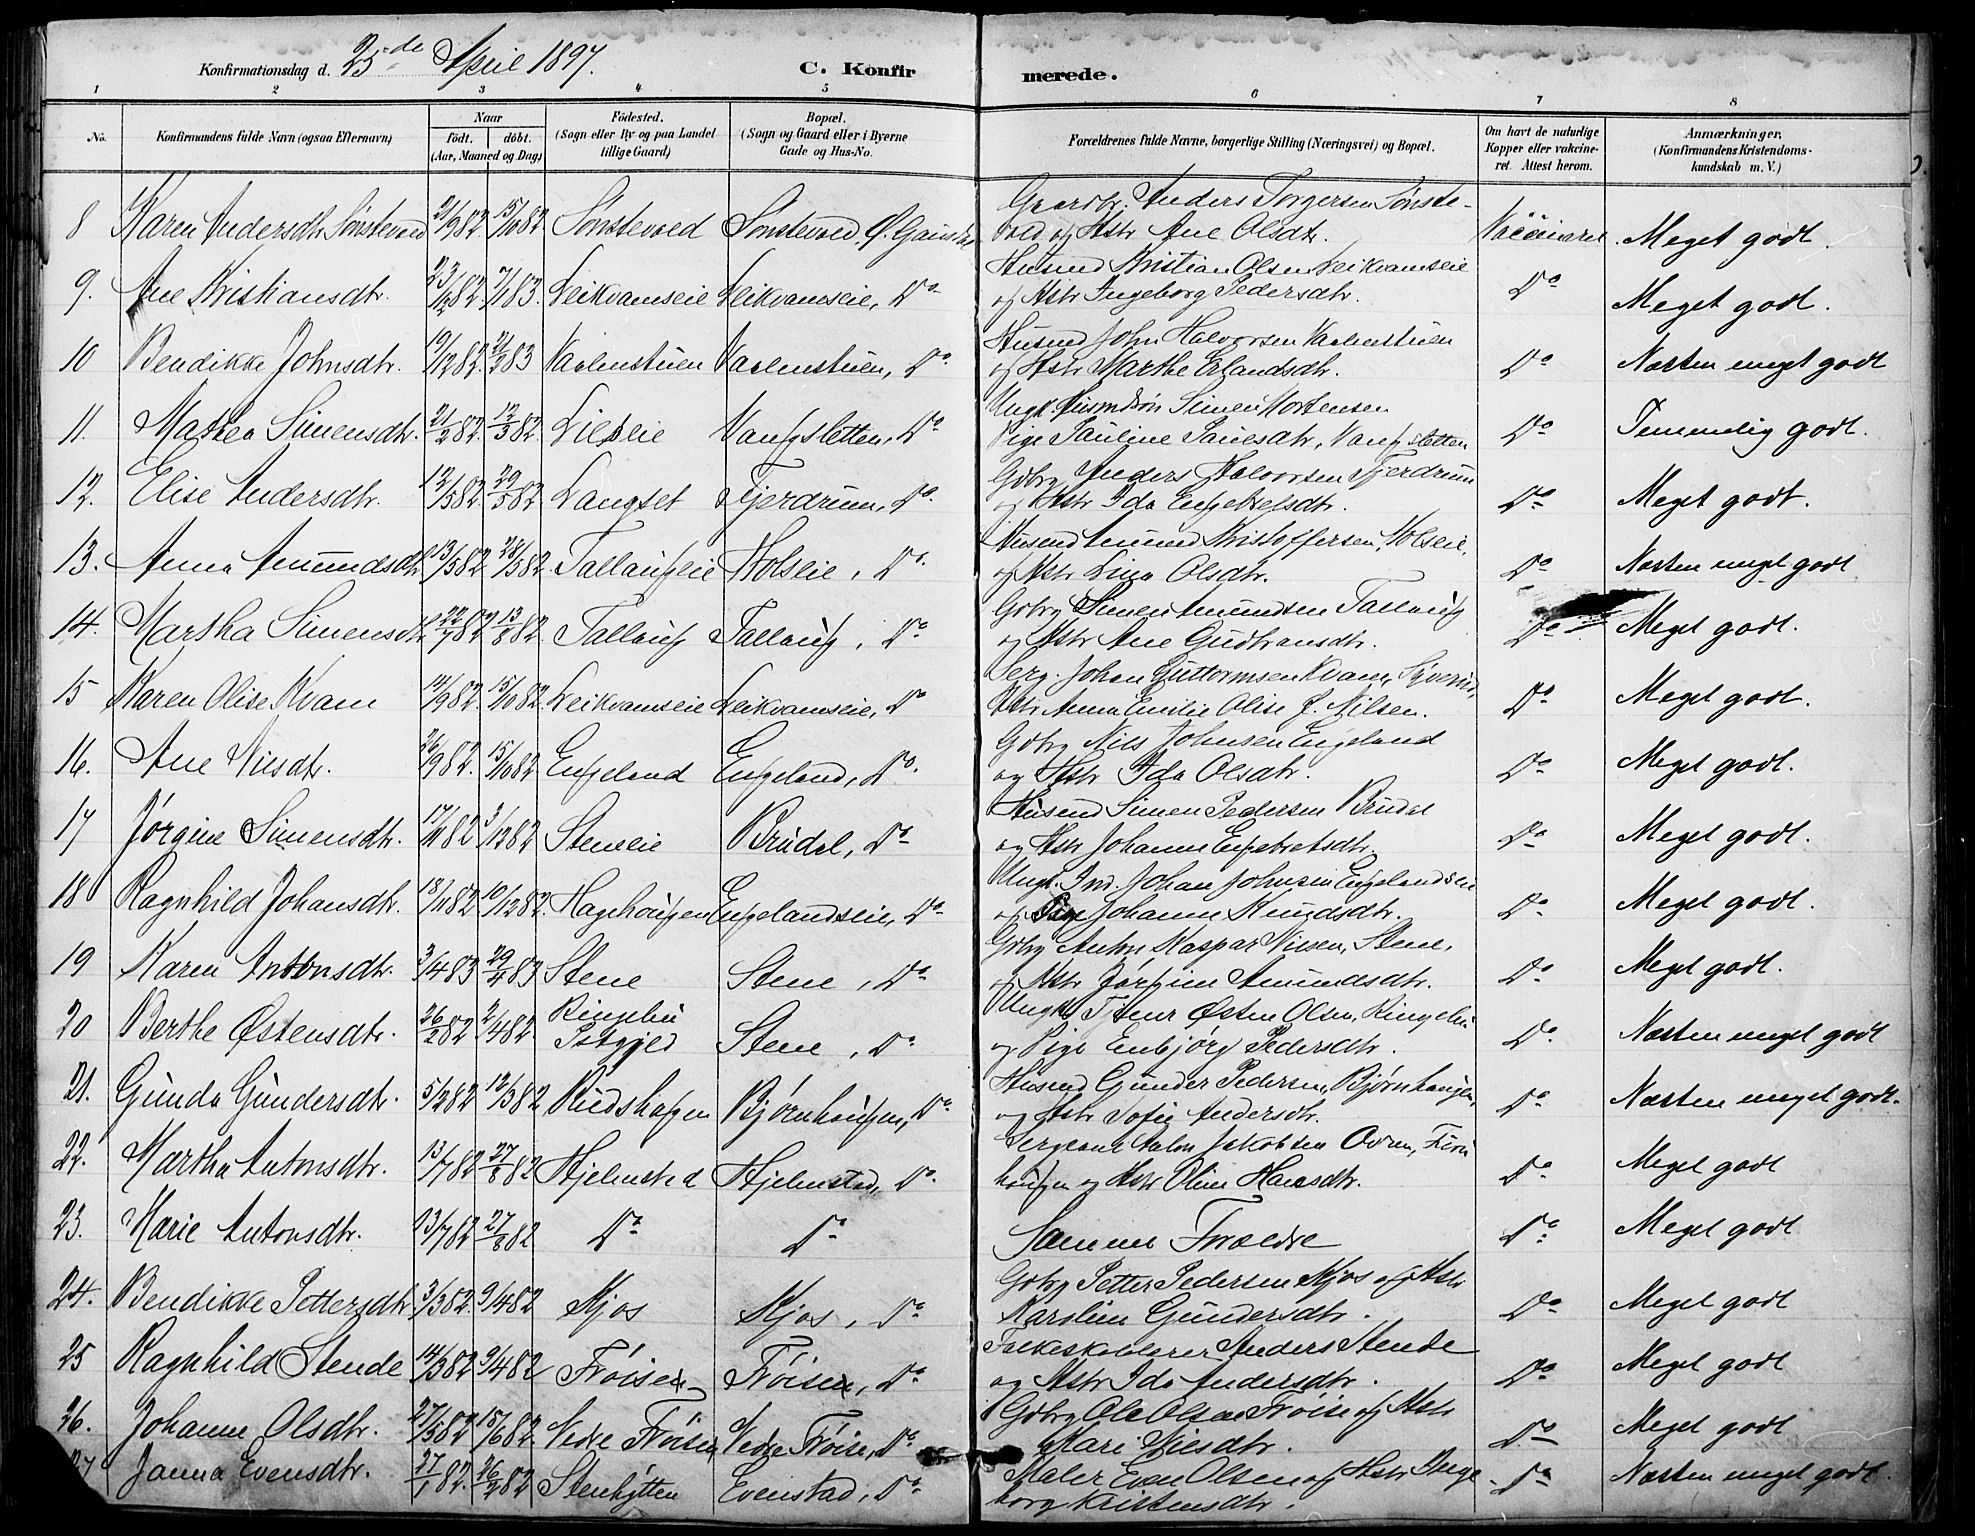 Konfirmationsdag d. 25de April 1897. C. Konfirmerede.
1 2 3 4 5 6 7 8
No. Konfirmandens fulde Navn (ogsaa Efternavn) Naar født. døbt. (Aar, Maaned og Dag) Fødested. (Sogn eller By og paa Landet tillige Gaard) Bopæl. (Sogn og Gaard eller i Byerne Gade og Hus-No. Forældrenes fulde Navne, borgerlige Stilling (Næringsvei) og Bopæl. Om havt de naturlige Kopper eller vakcineret. Attest herom. Anmærkninger. (Konfirmandens Kristendomskundskab m. V.)
8 Karen Andersdtr Sønsteved 21/9 82 15/10 82. Sønsteved Sønsteved, Ø. Gausdal Gaardbr. Anders Torgersen Sønste-
ved og Hstr Ane Olsdtr. Meget godt.
9. Ane Kristiansdtr. 23/12 82 7/1 83. Leikvamseie Leikvamseie, Do Husmd Kristian Olsen Leikvamseie
og Hstr Ingeborg Pedersdtr. Do Meget godt.
10 Bendikke Johnsdtr. 19/12 82. 21/2 83 Vaalenstuen Vaalenstuen, Do Husmd John Halvorsen Vaalenstuen
og Hstr Marthe Erlandsdtr. Do Næsten meget godt
11. Mathea Simensdtr. 21/2 82. 12/3 82 Lieseie Vangsletten, Do Ungk. Husmdsøn Simen Mortensen
Pige Pauline Paulsdtr, Vangsletten Do Temmelig godt.
12. Elise Andersdtr. 12/5 82. 29/5 82. Langset Fjerdrum, Do. Gdbrg Anders Halvorsen Fjerdrum
og Hstr Ida Engebretsdtr. Do Meget godt.
13. Anna Amundsdtr 13/5 82. 28/5 82. Tallaugseie Holseie, Do. Husmd Amund Kristoffersen, Holseie,
og Hstr Lina Olsdtr. Do Næsten meget godt
14. Martha Simensdtr 22/7 82 13/8 82. Tallaug Tallaug, Do Gdbrg Simen Amundsen Tallaug
og Hstr Ane Gudbransdtr. Do Meget godt.
15 Karen Olise Kvam 14/9 82. 15/10 82. Leikvamseie Leikvamseie, Do Serg. Johan Guttormsen Kvam,
Hstr Anna Emilie Olise f. Nilsen. Do Meget godt.
16. Ane Nilsdtr. 26/9 82. 15/10 82. Engeland Engeland, Do. Gdbrg Nils Johnsen Engeland
og Hstr Ida Olsdtr. Do Meget godt.
17 Jørgine Simensdtr. 17/11 82 3/12 82 Steneeie Brudal, Do Husmd Simen Pedersen Brudal
og Hstr Johanne Engebretsdtr. Do Meget godt.
18 Ragnhild Johansdtr. 18/11 82 10/12 82. Hagehougen Engelandseie, Do Ungk. Ind. Johan Johnsen Engelandseie
og Pige Johanne Knudsdtr. Do Meget godt.
19 Karen Antonsdtr. 3/4 83 29/4 83 Stene Stene, Do Gdbrg Anton Kaspar Nilsen, Stene,
og Hstr Jørgine Amundsdtr. Do Meget godt.
20 Berthe Østensdtr. 26/2 82 2/4 82. Ringebu Pstgjed Stene, Do Ungk. Tjener Østen Olsen, Ringebu
og Pige Embjørg Pedersdtr. Do. Næsten meget godt
21. Gunda Gundersdtr. 5/2 82 12/3 82 Rudshagen Bjørnhaugen, Do Husmd Gunder Pedersen, Bjørnhaugen,
og Hstr Sofie Andersdtr. Do Næsten meget godt.
22. Martha Antonsdtr. 13/7 82 27/8 82 Hjelmsted Hjelmstad, Do. Sergeant Anton Jakobsen
og Hstr Oline Hansdtr. Do Meget godt
23. Marie Antonsdtr. 13/7 82 27/8 82 Do Do Samme Forældre Do Meget godt
24. Bendikke Pettersdtr 3/3 82. 9/4 82 Kjos Kjos, Do Gdbrg Petter Pedersen Kjos og Hstr
Karoline Gundersdtr. Do Meget godt
25 Ragnhild Stende 14/3 82 9/4 82 Frøisen Frøisen, Do Folkeskolelærer Anders Stende
og Hstr Ida Andersdtr. Do Meget godt
26. Johanne Olsdtr. 27/5 82 15/6 82. Nedre Frøise Nedre Frøise, Do Gdbrg Ole Olsen Frøise og Hstr
Kari Nilsdtr. Do Meget godt
27 Janna Evensdtr. 27/1 82. 26/2 82 Stenhytten Evenstad, Do Maler Even Olsen og Hstr Inge
borg Kristensdtr. Do Næsten meget godt.